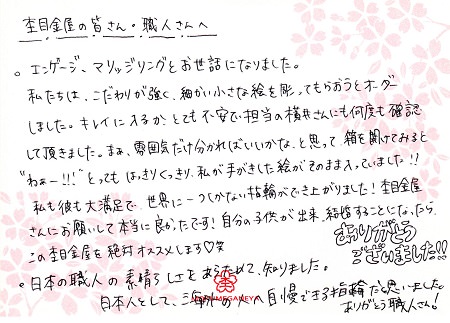 杢目金屋の皆さん・職人さんへ
。エンゲージ、マリッジリングとお世話になりました。
私たちは、こだわりが強く、細かい小さな絵を彫ってもらおうとオーダー
しました。キレイに入るか、とても不安で担当の横井さんにも何度も確認
して頂きました。まぁ、雰囲気だけ分かればいいかな、と思って、箱を開けてみると
"わぁー!!!" とってもはっきりくっきり、私が手がきした絵がそのまま入っていました!!
私も彼も大満足で、世界に一つしかない指輪ができ上がりました!杢目金屋
さんにお願いして本当に良かったです!自分の子供が出来、結婚することになったら、
この杢目金屋を絶対オススメします♡笑
ありがとう
ございました!!
・日本の職人の素晴らしさをあらためて、知りました。
日本人として、海外の人へ自慢できる指輪だと思いました。
ありがとう職人さん!
MOKUMEGANEYA